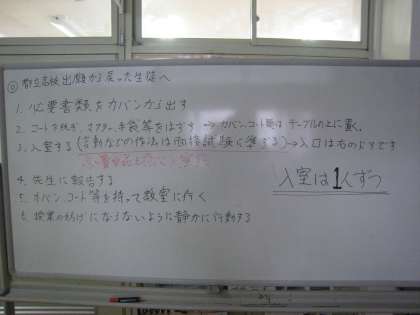 ◎都立高校出願から戻った生徒へ
1. 必要書類をカバンから出す
2. コートを脱ぎ、マフラー、手袋等をはずす → カバン、コート類はテーブルの上に置く。
3. 入室する(言動などの作法は面接試験に準ずる) → 入口は右のドアです
4. 先生に報告する
5. カバン、コート等を持って教室に行く
6. 授業の妨げにならないように静かに行動する
入室は1人ずつ